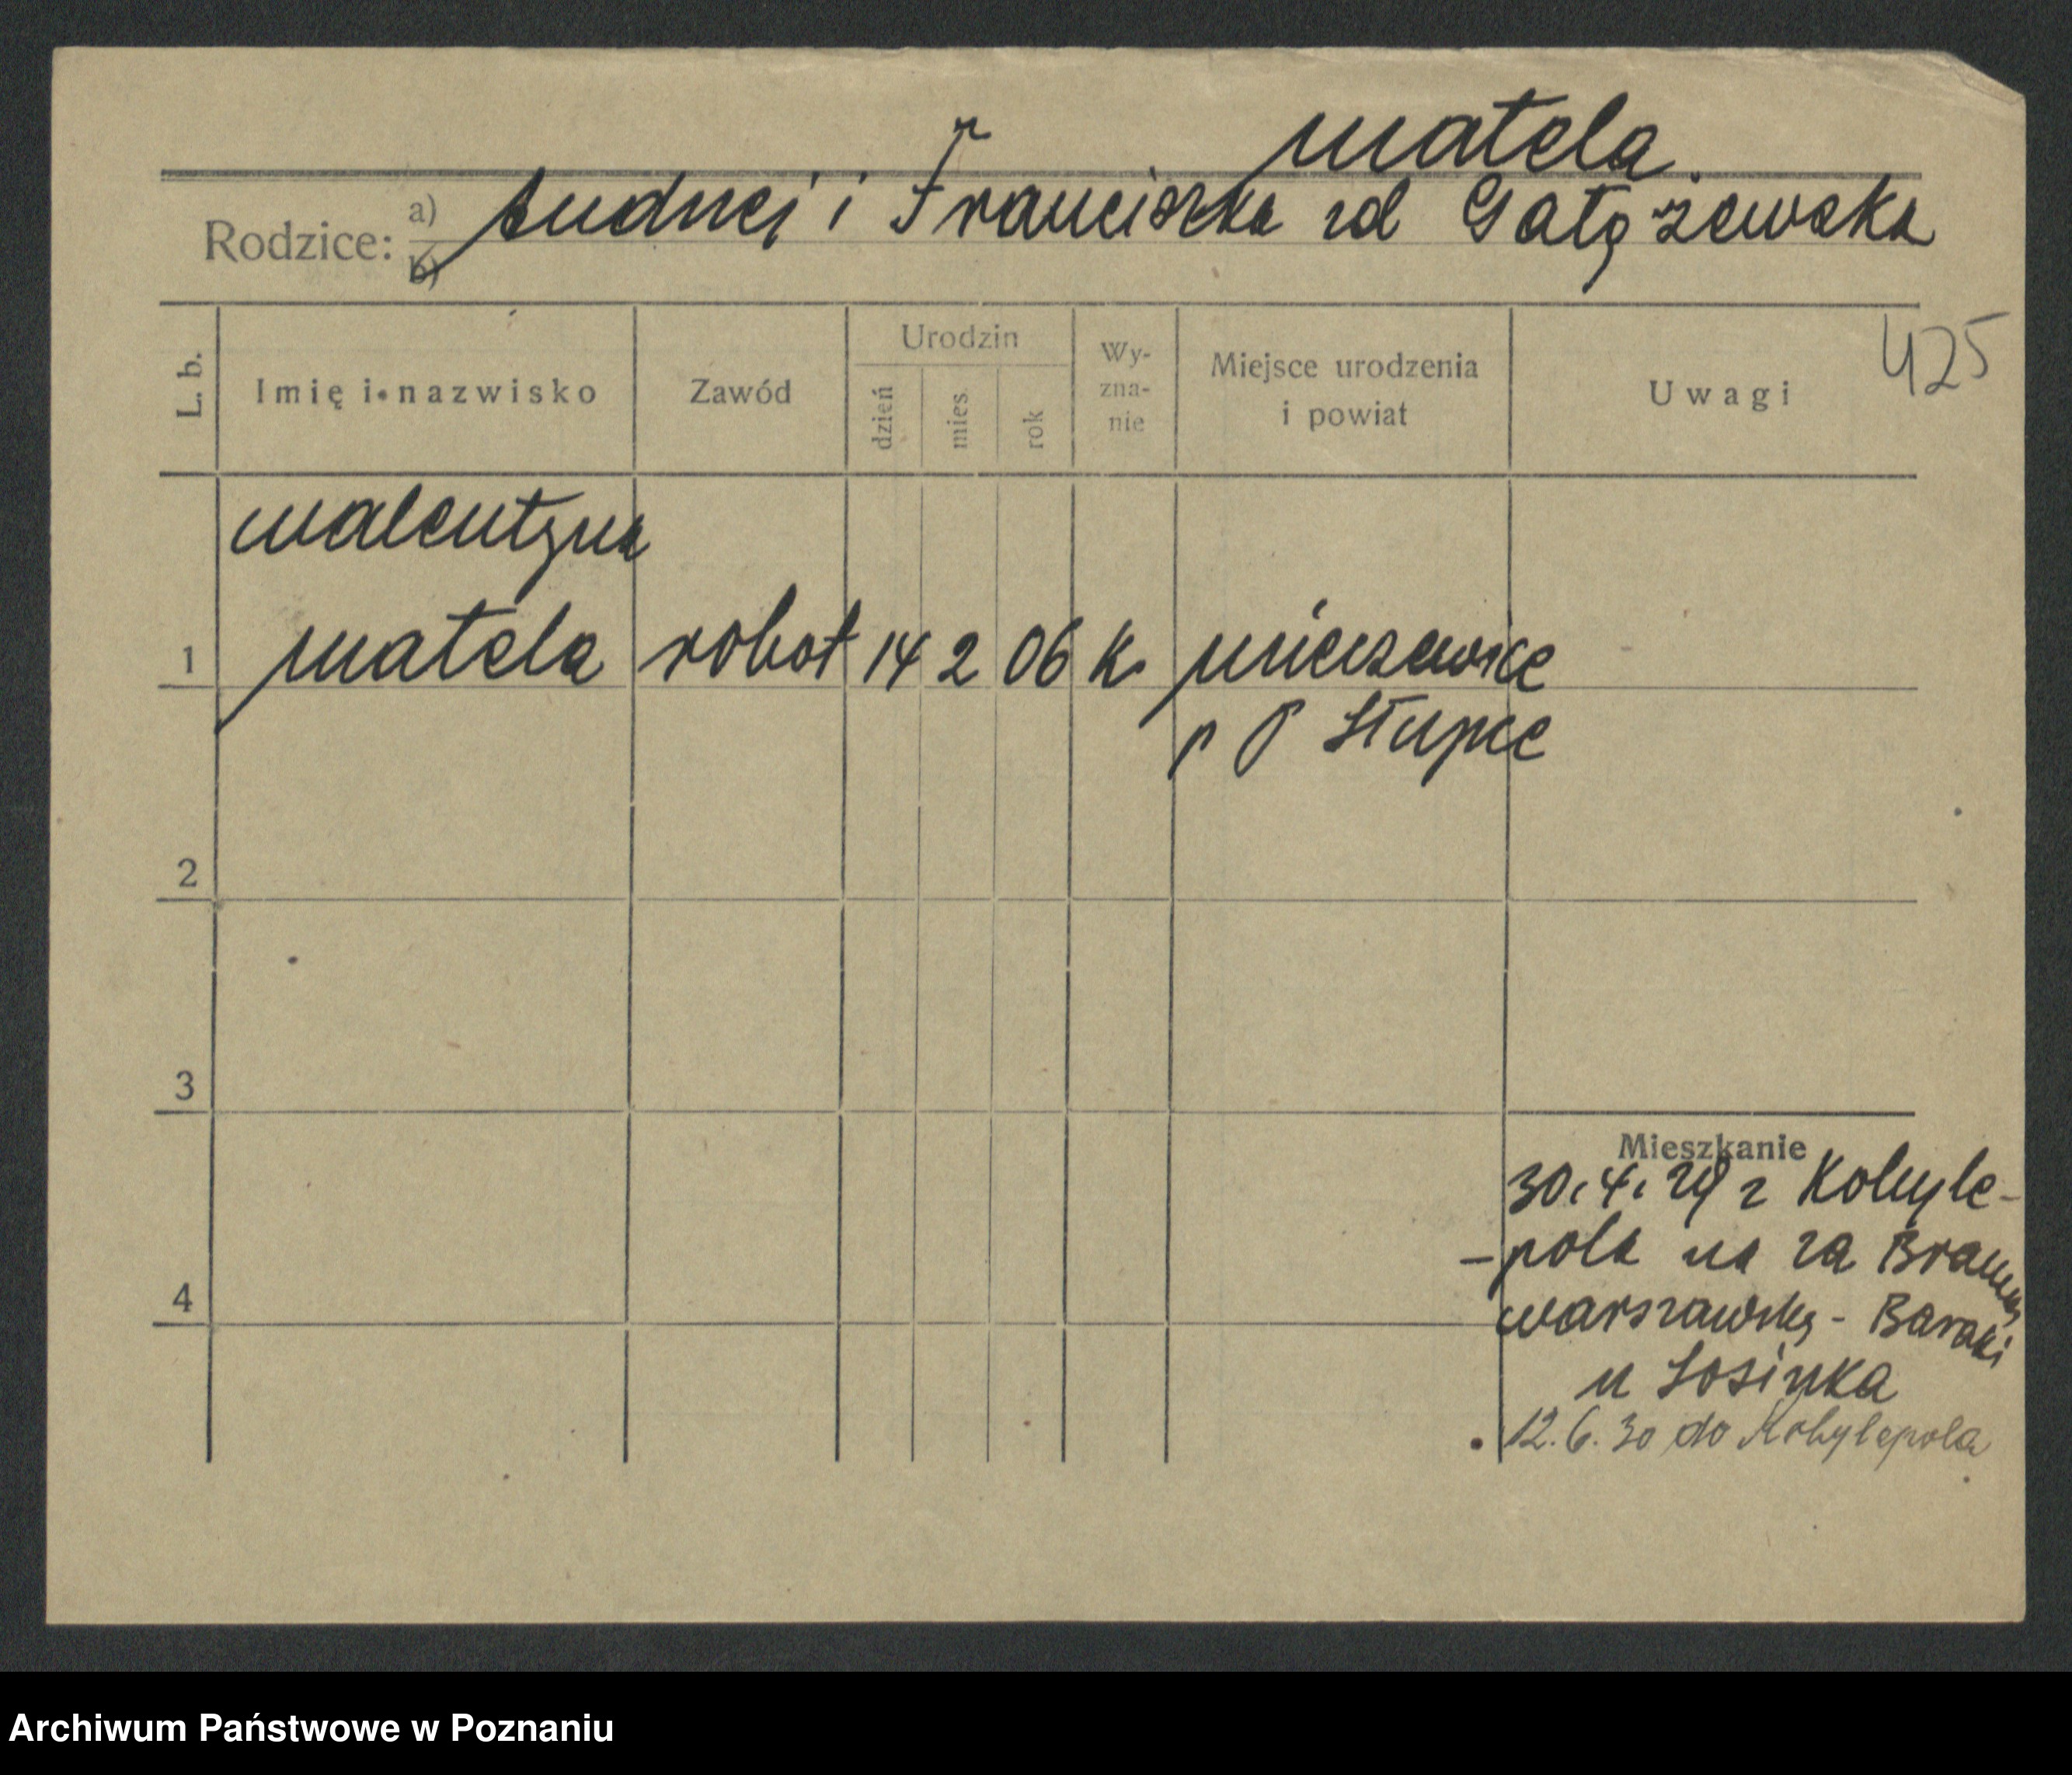 Matela
Rodzice: a) b) Andrzej i Franciszka zd
425
L. b. Imię i nazwisko Zawód Urodzin dzień mies. rok Wy-zna-nie Miejsce urodzenia i powiat Uwagi
Walentyna
1 Matela robot 14 2 06 k.
p P Słupce
2
3
Mieszkanie
30.4.29 z Kobyle-
4
-pola na za Bramką
Warszawską - Baraki
u Sosinka
12.6.30 do Kobylepola
Archiwum Państwowe w Poznaniu